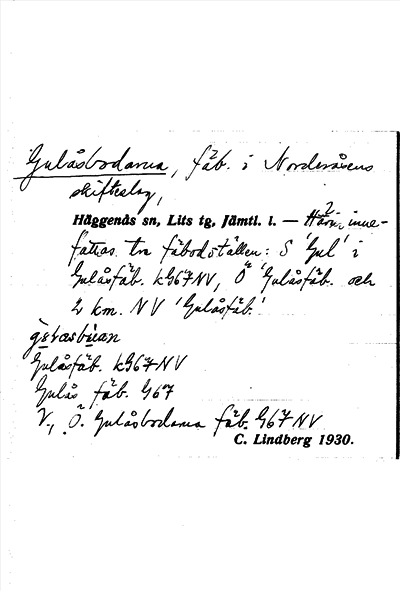 Gulåsbodarna, fäb. i Norderåsens
skifteslag,
Häggenås sn, Lits tg, Jämtl. l. — Häri inne-
fattas tre fäbodställen: S 'Gul' i
'Gulåsfäb. kG67NV, Ö 'Gulåsfäb. och
2 km. NV 'Gulåsfäb.'
Gulåsfäb. kG67NV
Gulås fäb. G67
V., Ö. Gulåsbodarna fäb. G67NV
C. Lindberg 1930.